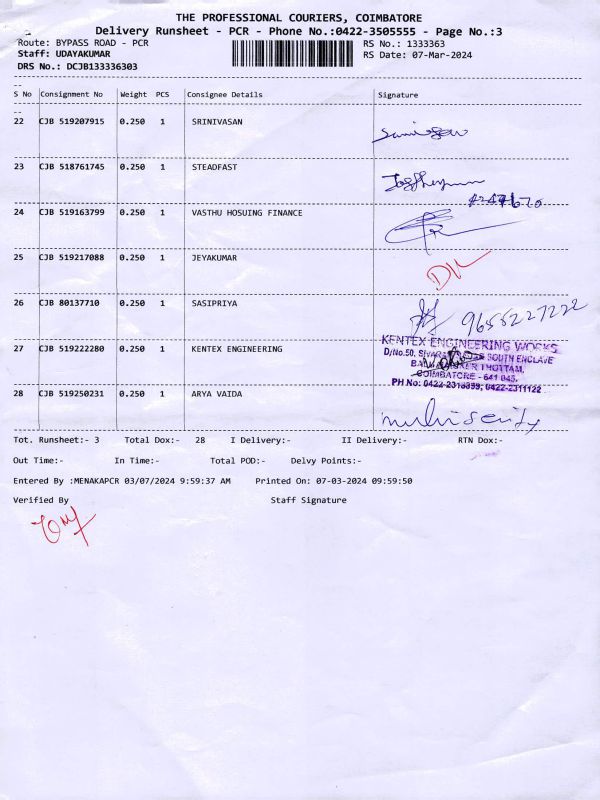 THE PROFESSIONAL COURIERS, COIMBATORE
Delivery Runsheet - PCR - Phone No.:0422-3505555 - Page No.:3
Route: BYPASS ROAD - PCR
RS No.: 1333363
Staff: UDAYAKUMAR
RS Date: 07-Mar-2024
DRS No.: DCJB133336303
S No Consignment No Weight PCS Consignee Details Signature
22 CJB 519207915 0.250 1 SRINIVASAN
23 CJB 518761745 0.250 1 STEADFAST
24 CJB 519163799 0.250 1 VASTHU HOSUING FINANCE
25 CJB 519217088 0.250 1 JEYAKUMAR
26 CJB 80137710 0.250 1 SASIPRIYA
9655227222
27 CJB 519222280 0.250 1 KENTEX ENGINEERING
KENTEX ENGINEERING WORKS
D/No.50, SOUTH ENCLAVE
THOTTAM,
COIMBATORE - 641 045.
PH No: 0422-2318399, 0422-2311122
28 CJB 519250231 0.250 1 ARYA VAIDA
Tot. Runsheet:- 3 Total Dox:- 28 I Delivery:- II Delivery:- RTN Dox:-
Out Time:- In Time:- Total POD:- Delvy Points:-
Entered By :MENAKAPCR 03/07/2024 9:59:37 AM Printed On: 07-03-2024 09:59:50
Verified By Staff Signature